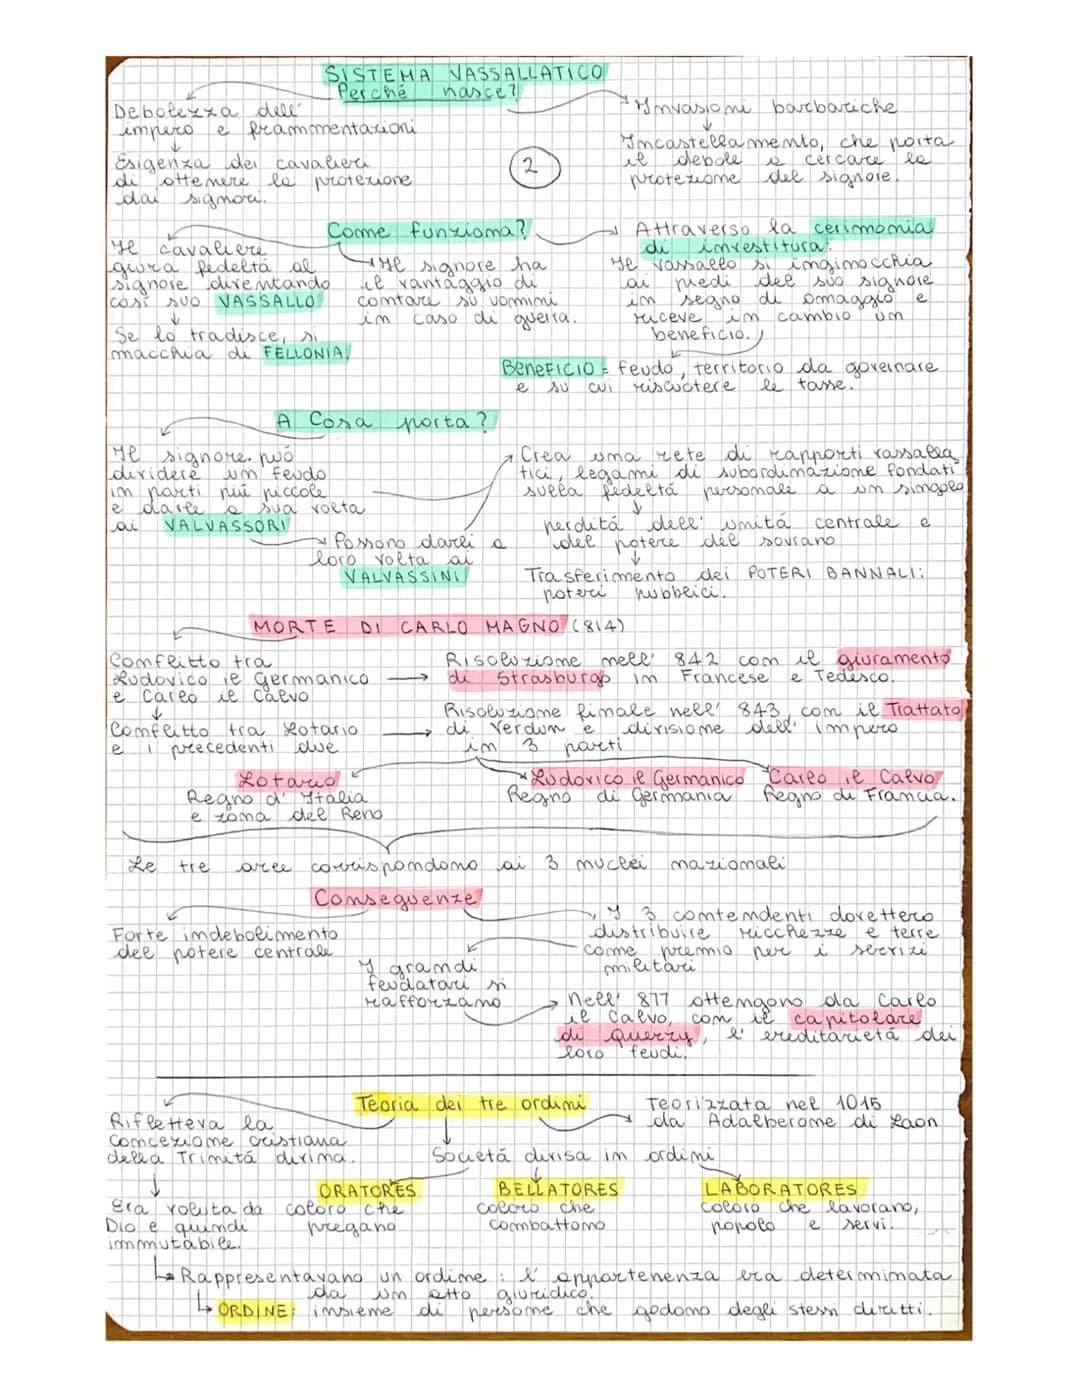 SISTEMA VASSALLATICO
Perché nasce?
Debolezza dell'
impero e frammentazioni
Esigenza dei cavalieri
di ottenere la protezione
dai signori.
2
Invasioni barbariche
Incastellamento, che porta
il debole a cercare la
protezione del signore.
Come funziona?
Il cavaliere
giura fedeltá al
signore diventando
cosí suo VASSALLO
Se lo tradisce, si
macchia di FELLONIA.
Il signore ha
il vantaggio di
contare su uomini
in caso di guerra.
Attraverso la cerimonia
di investitura.
Il vassallo si inginocchia
ai piedi del suo signore
in segno di omaggio e
riceve in cambio un
beneficio.
BENEFICIO = feudo, territorio da governare
e su cui riscuotere le tasse.
A Cosa porta?
Il signore puó
dividere un feudo
in parti piú piccole
e darle a sua volta
ai VALVASSORI
Possono darli a
loro volta ai
VALVASSINI
Crea una rete di rapporti vassalla
tici, legami di subordinazione fondati
sulla fedeltá personale a un singolo
perditá dell' unitá centrale e
del potere del sovrano
Trasferimento dei POTERI BANNALI:
poteri pubblici.
MORTE DI CARLO MAGNO (814)
Conflitto tra
Ludovico il Germanico
e Carlo il Calvo
Risoluzione nell' 842 con il giuramento
di Strasburgo in Francese e Tedesco.
Conflitto tra Lotario
e i precedenti due
Risoluzione finale nell' 843 con il Trattato
di Verdun e divisione dell' impero
in 3 parti
Lotario
Regno d' Italia
e zona del Reno
Ludovico il Germanico
Regno di Germania
Carlo il Calvo
Regno di Francia.
Le tre aree corrispondono ai 3 nuclei nazionali
Conseguenze
Forte indebolimento
del potere centrale
I 3 contendenti dovettero
distribuire ricchezze e terre
come premio per i servizi
militari
I grandi
feudatari si
rafforzano
Nell' 877 ottengono da Carlo
il Calvo, con il capitolare
di Querzy, l' ereditarietá dei
loro feudi.
Teoria dei tre ordini
Rifletteva la
concezione cristiana
della Trinitá divina.
Teorizzata nel 1015
da Adalberone di Laon
Societá divisa in ordini
Era voluta da
Dio e quindi
immutabile.
ORATORES
coloro che
pregano
BELLATORES
coloro che
combattono
LABORATORES
coloro che lavorano,
popolo e servi.
Rappresentavano un ordine : l' appartenenza era determinata
da un atto giuridico.
ORDINE: insieme di persone che godono degli stessi diritti.